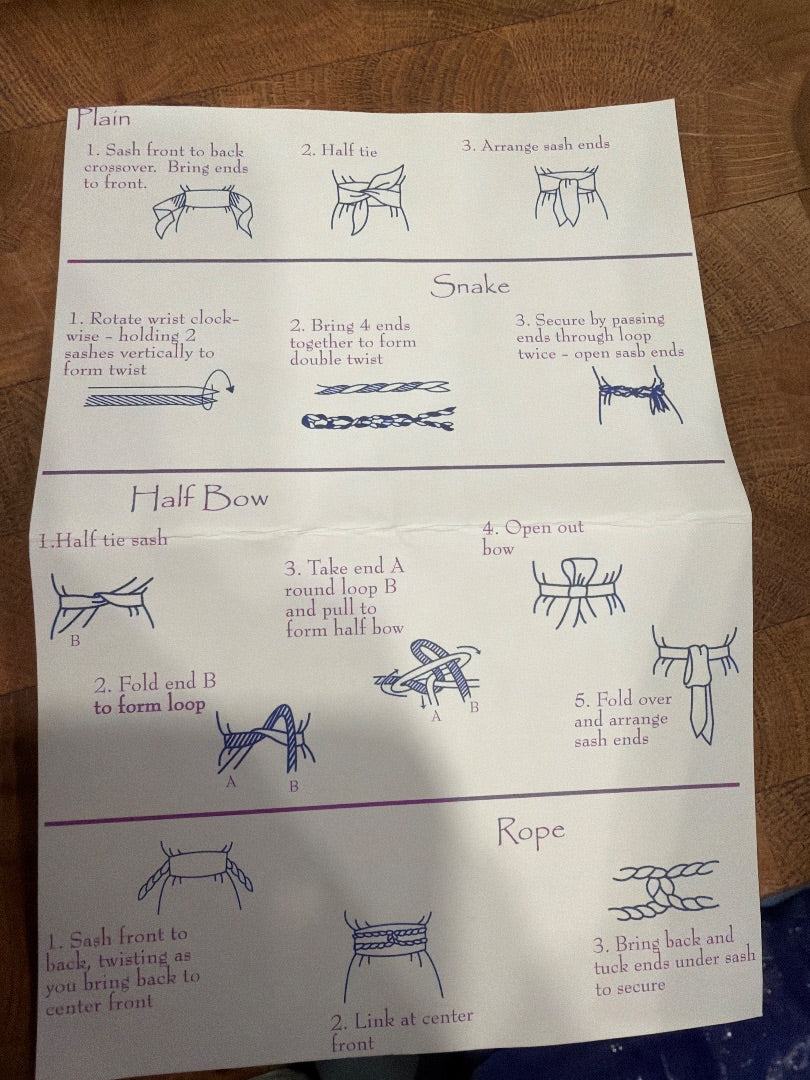 Plain
1. Sash front to back
crossover. Bring ends
to front.
2. Half tie
3. Arrange sash ends
Snake
1. Rotate wrist clock-
wise - holding 2
sashes vertically to
form twist
2. Bring 4 ends
together to form
double twist
3. Secure by passing
ends through loop
twice - open sash ends
Half Bow
1.Half tie sash
B
2. Fold end B
to form loop
A
B
3. Take end A
round loop B
and pull to
form half bow
A
B
4. Open out
bow
5. Fold over
and arrange
sash ends
Rope
1. Sash front to
back, twisting as
you bring back to
center front
2. Link at center
front
3. Bring back and
tuck ends under sash
to secure